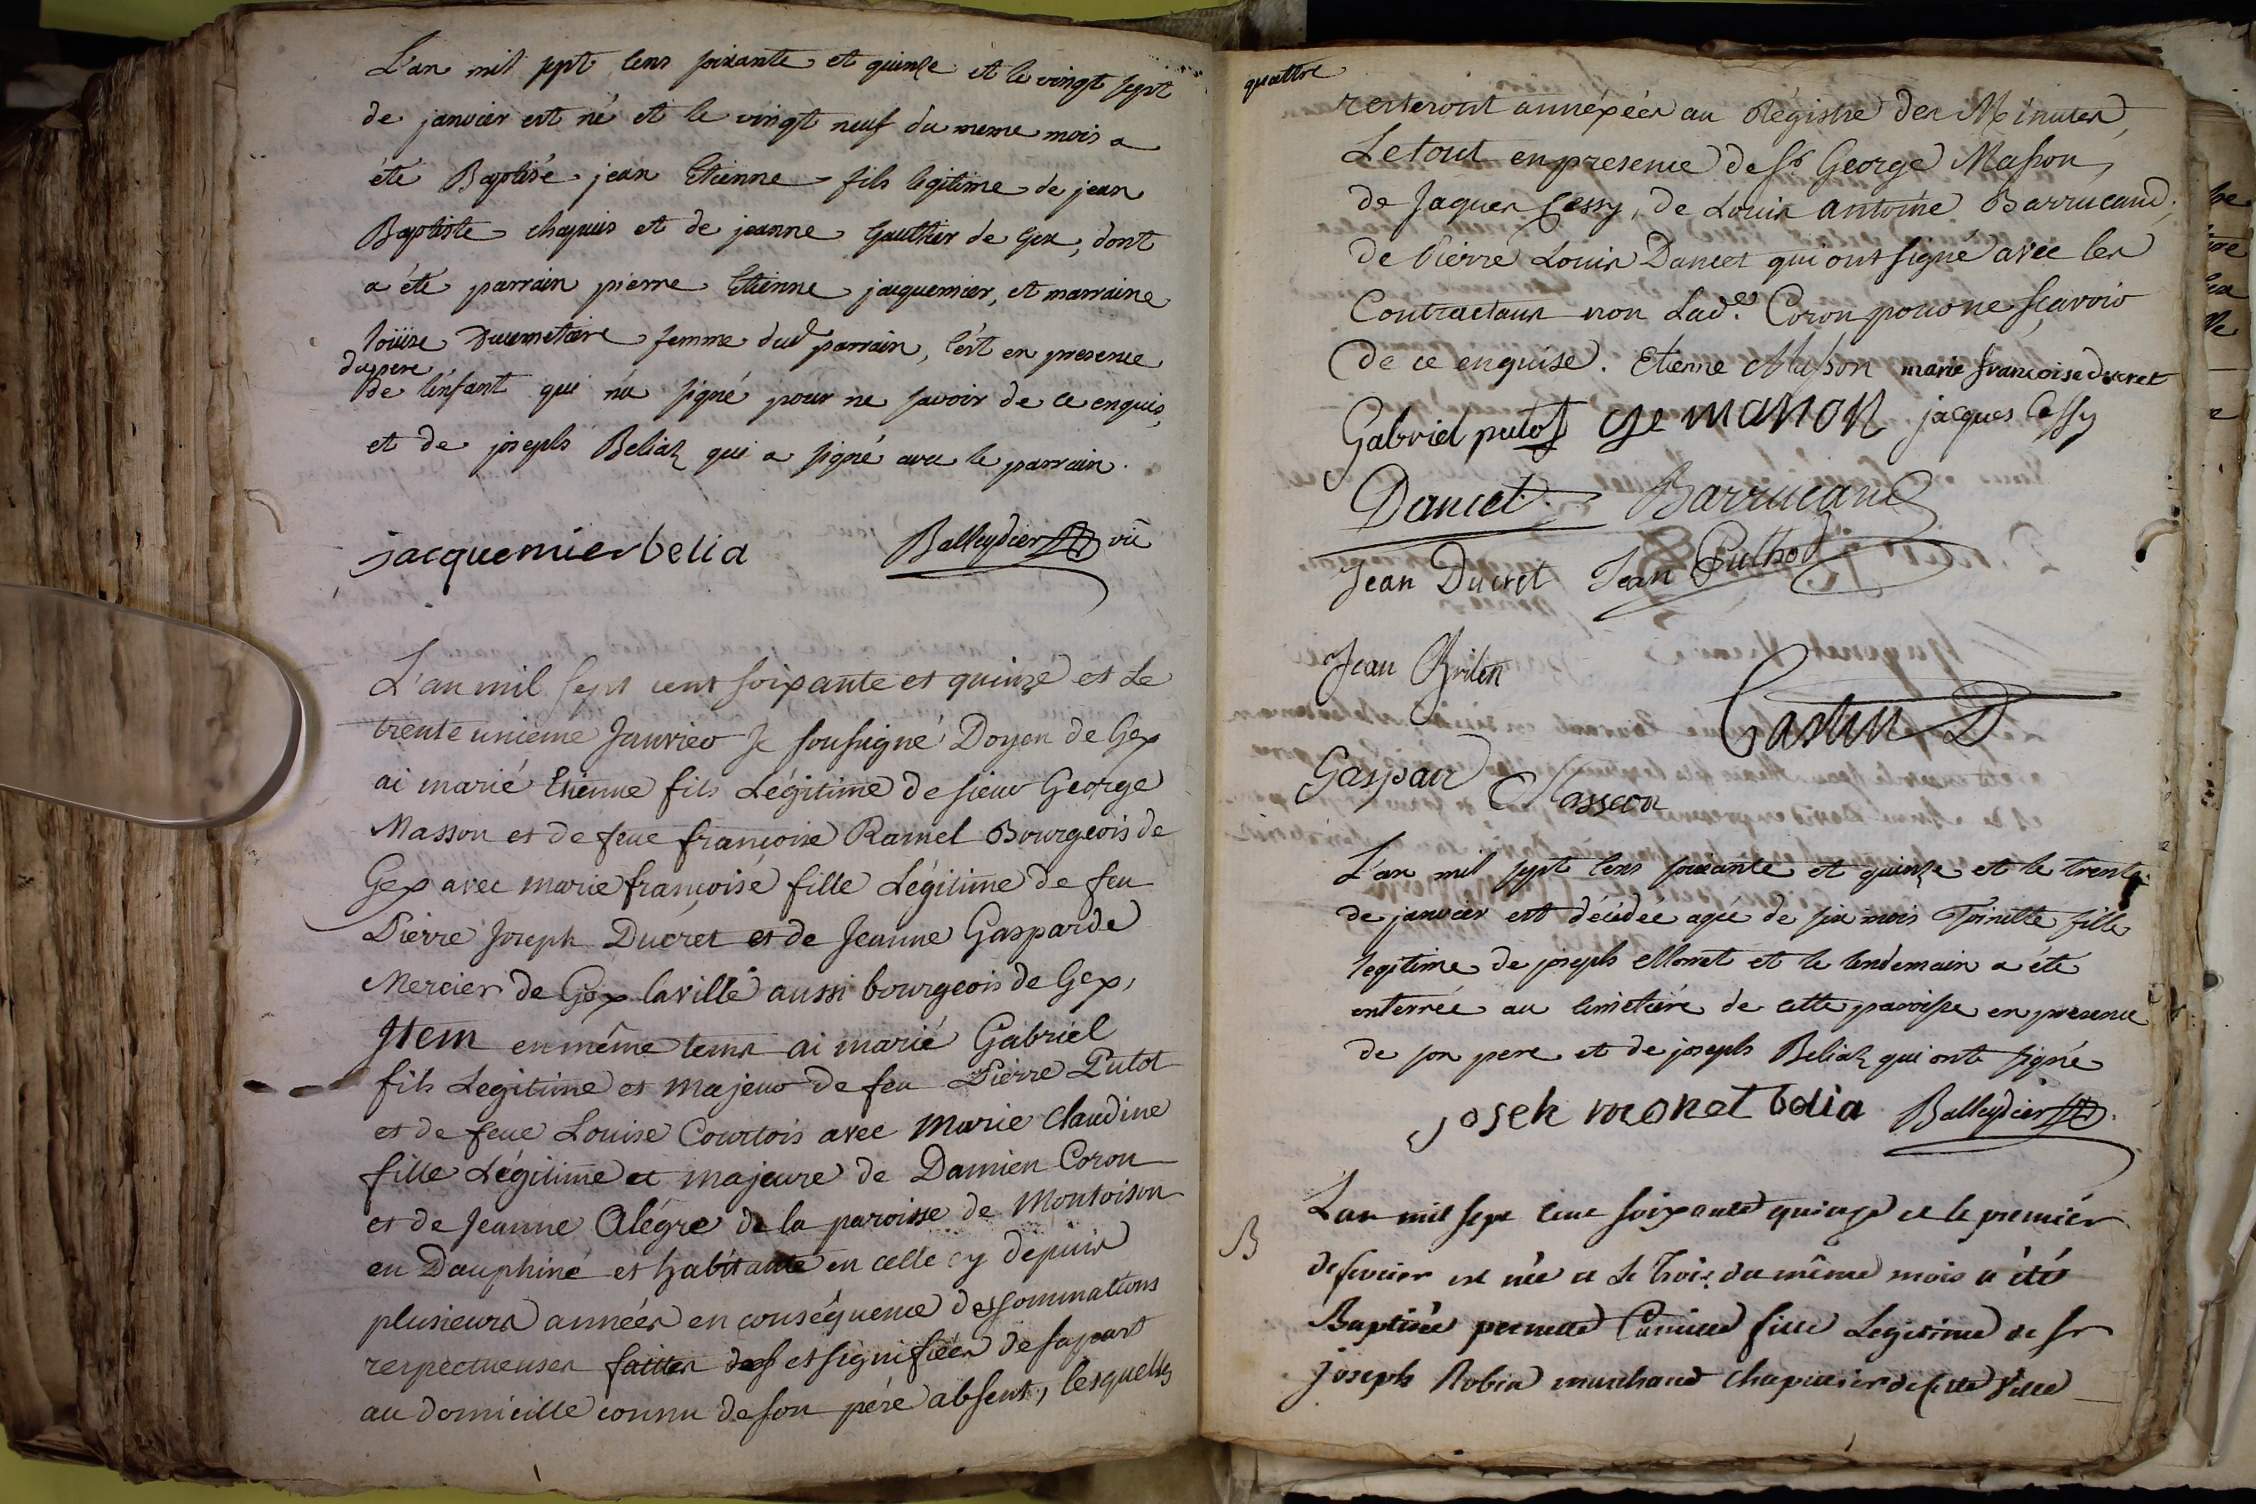 L'an mil sept cens soixante et quinze et le vingt sept
de janvier est né et le vingt neuf du meme mois a
été Baptisé jean Etienne fils legitime de jean
Baptiste chapuis et de jeanne Gauthier de Gex, dont
a été parrain pierre Etienne jacquemier, et marraine
loüise Ducimetaire femme dud parrain, c'ést en presence
du pere
de l'enfant qui n'a signé pour ne savoir de ce enquis,
et de joseph Beliaz qui a signé avec le parrain.
jacquemier belia Balleydier vic
L'an mil sept cent soixante et quinze et Le
trente unieme Janvier Je soussigné Doyen de Gex
ai marié Etienne fils Légitime de sieur George
Masson et de feue françoise Ramel Bourgeois de
Gex avec marie françoise fille Légitime de feu
Pierre Joseph Ducret et de Jeanne Gasparde
Mercier de Gex la ville aussi bourgeois de Gex,
Item en même tems ai marié Gabriel
fils Legitime et majeur de feu Pierre Putot
et de feue Louise Courtois avec Marie claudine
fille Légitime et majeure de Damien Coron
et de Jeanne Alégre de la paroisse de Montoison
en Dauphiné et habitante en celle cy depuis
plusieurs années en conséquence des sommations
respectueuses faittes et signifiées de sa part
au domicille connu de son pére absent, lesquelles
quattre
resteront annéxées au Régistre des Minutes,
Le tout en presence de Sr George Masson,
de Jaques Cessy, de Louis antoine Barrucand,
de Pierre Louis Dancet qui ont signé avec les
Contractans non Lade. Coron pour ne sçavoir
de ce enquise. Etienne Masson marie francoise ducret
Gabriel putot ge masson jacques Cessy
Dancet Barrucand
Jean Ducret Jean Puthod
Jean
Castin D
Gaspard Masson
L'an mil sept cens soixante et quinze et le trente
de janvier est décédée agée de six mois Toinette fille
legitime de joseph Monet et le lendemain a été
enterrée au cimetiére de cette paroisse en presence
de son pere et de joseph Beliaz qui ont signé
joseh monet belia Balleydier
B
L'an mil sept cent soixante quinze et le premier
de fevrier est née et Le trois du même mois a été
Baptisée pernette Camille fille Legitime de sr
joseph Robin marchand chapellier de cette ville